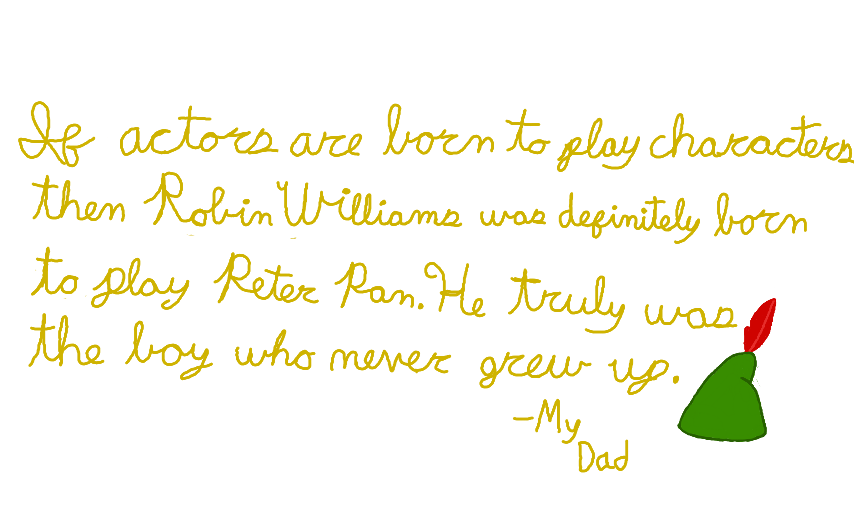 If actors are born to play characters
then Robin Williams was definitely born
to play Peter Pan. He truly was
the boy who never grew up.
-My
Dad